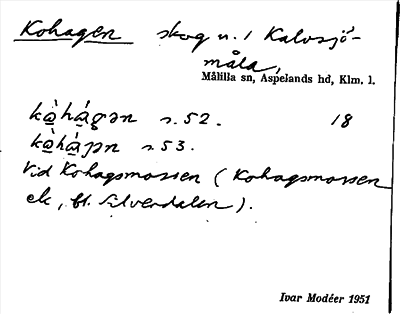 Kohagen skog n. / Kalvsjö-
måla,
Målilla sn, Aspelands hd, Klm. l.
kò̲há̲gən s. 52. 18
kò̲há̲ɲən s. 53.
Vid Kohagsmossen (Kohagsmossen
ek, bl. Silverdalen).
Ivar Modéer 1951